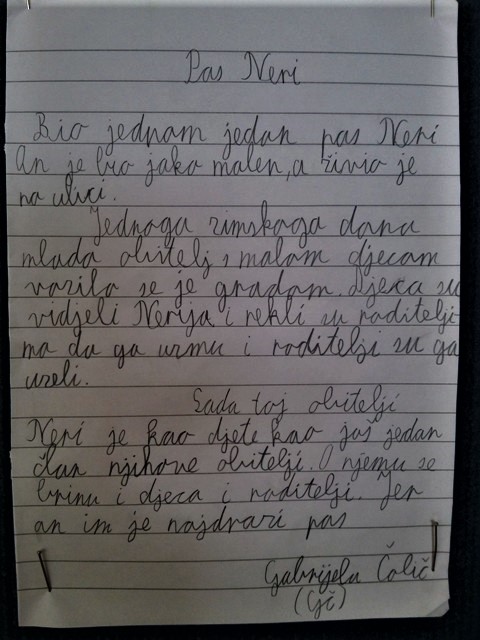 Pas Neri
Bio jednom jedan pas Neri
On je bio jako malen, a živio je
na ulici.
Jednoga zimskoga dana
mlada obitelj s malom djecom
vozila se je gradom. Djeca su
vidjeli Nerija i rekli su roditelji
ma da ga uzmu i roditelji su ga
uzeli.
Sada toj obitelji
Neri je kao djete kao još jedan
član njihove obitelji. O njemu se
brinu i djeca i roditelji. Jer
on im je najdraži pas
Gabrijela Čolić